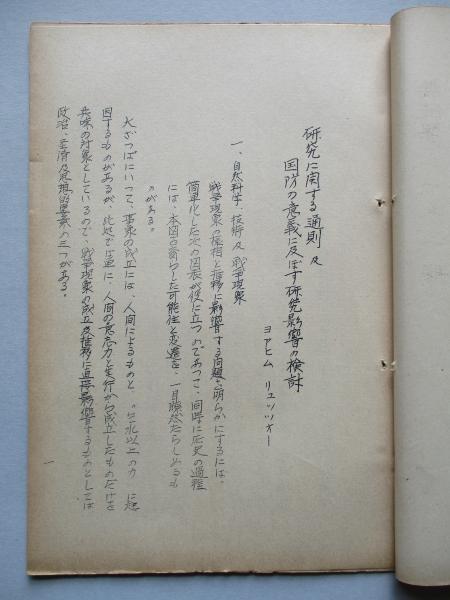 研究に関する通則及
国防の意義に及ぼす研究影響の検討
ヨアヒム リュッツォー
一、自然科学、技術及戦争現象
戦争現象の様相と推移に影響する問題を明らかにするには、
簡単化した次の図表が役に立つのであつて、同時に歴史の過程
には、本図が齎らした可能性と変遷を、一目瞭然たらしめるも
のがある。
大ざつばにいつて、事象の成立には、人間によるものと、それ以上の力に起
因するものがあるが、此処では単に、人間の意志力と実行から成立したものだけを
興味の対象としているので、戦争現象の成立及推移に直接影響するものとしては
政治、経済及の三つがある。
一